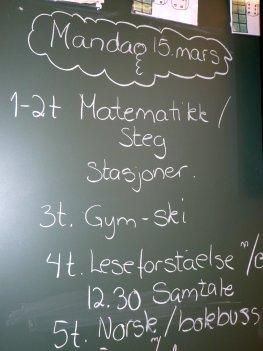 Mandag 15. mars
1-2t Matematikk /
Steg
Stasjoner.
3t. Gym-ski
4t. Leseforståelse m/
12.30 Samtale
5t. Norsk / bokbuss